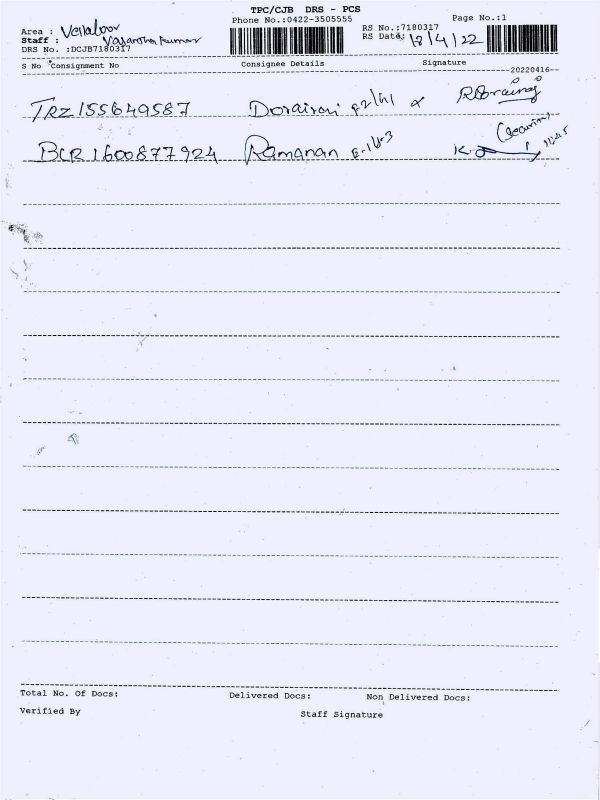 TPC/CJB DRS - PCS
Phone No.:0422-3505555
Page No.:1
Area : Vellaloor
Staff : Vasantha kumar
RS No.:7180317
RS Date: 18/4/22
DRS No. :DCJB7180317
S No Consignment No Consignee Details Signature
--20220416--
TRZ155649587 Dorairaj F2/41
BCR1600877924 Ramanan
Total No. Of Docs: Delivered Docs: Non Delivered Docs:
Verified By Staff Signature